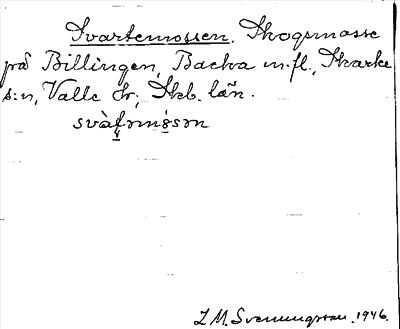 Svartemossen. Skogsmosse
på Billingen, Backa m.fl., Skarke
s:n, Valle hr, Skb. län.
L M. Svenungsson. 1946.